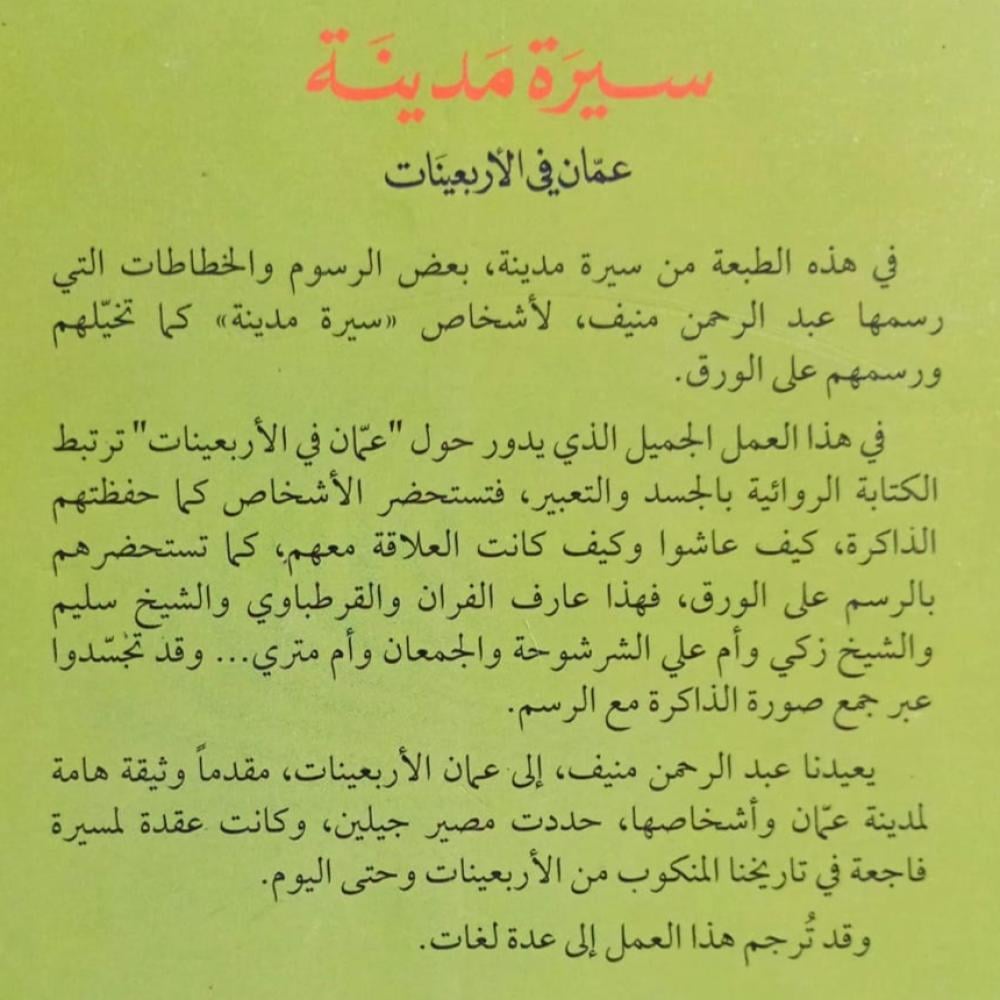 سيرَة مَدينَة
عمّان في الأربعينَات
في هذه الطبعة من سيرة مدينة، بعض الرسوم والخطاطات التي
رسمها عبد الرحمن منيف، لأشخاص «سيرة مدينة» كما تخيّلهم
ورسمهم على الورق.
في هذا العمل الجميل الذي يدور حول "عمّان في الأربعينات" ترتبط
الكتابة الروائية بالجسد والتعبير، فتستحضر الأشخاص كما حفظتهم
الذاكرة، كيف عاشوا وكيف كانت العلاقة معهم، كما تستحضرهم
بالرسم على الورق، فهذا عارف الفران والقرطباوي والشيخ سليم
والشيخ زكي وأم علي الشرشوحة والجمعان وأم متري... وقد تجسّدوا
عبر جمع صورة الذاكرة مع الرسم.
يعيدنا عبد الرحمن منيف، إلى عمان الأربعينات، مقدماً وثيقة هامة
لمدينة عمّان وأشخاصها، حددت مصير جيلين، وكانت عقدة لمسيرة
فاجعة في تاريخنا المنكوب من الأربعينات وحتى اليوم.
وقد تُرجم هذا العمل إلى عدة لغات.